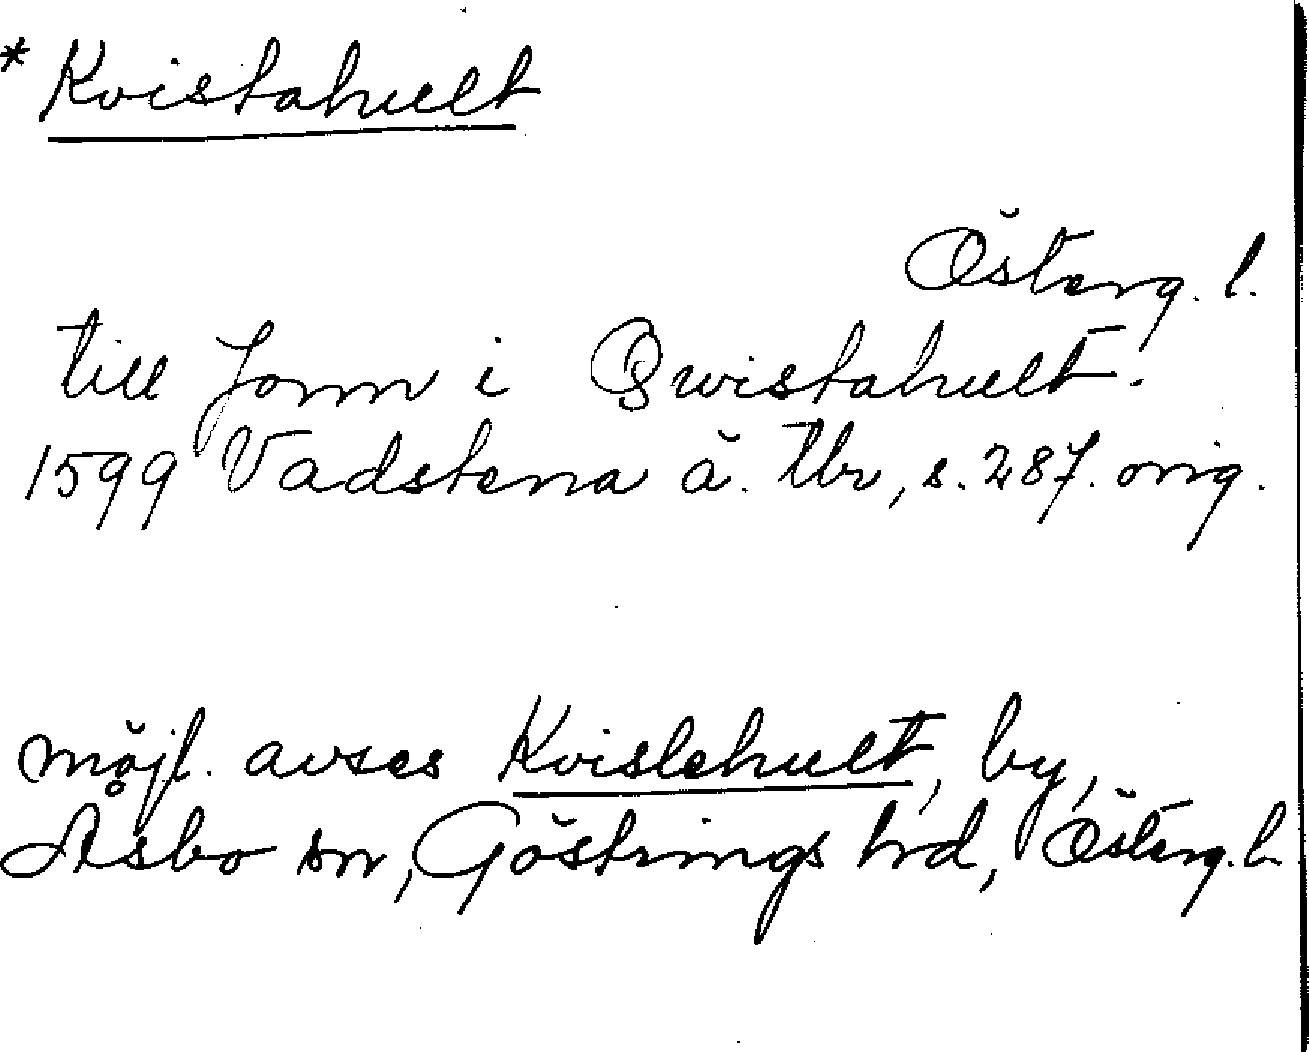 * Kvistahult
Österg. l.
till Jonn i Qwistahult.
1599 Vadstena ä. tbr, s. 287. orig.
möjl. avses Kvislehult, by,
Åsbo sn, Göstrings hd, Österg. l.